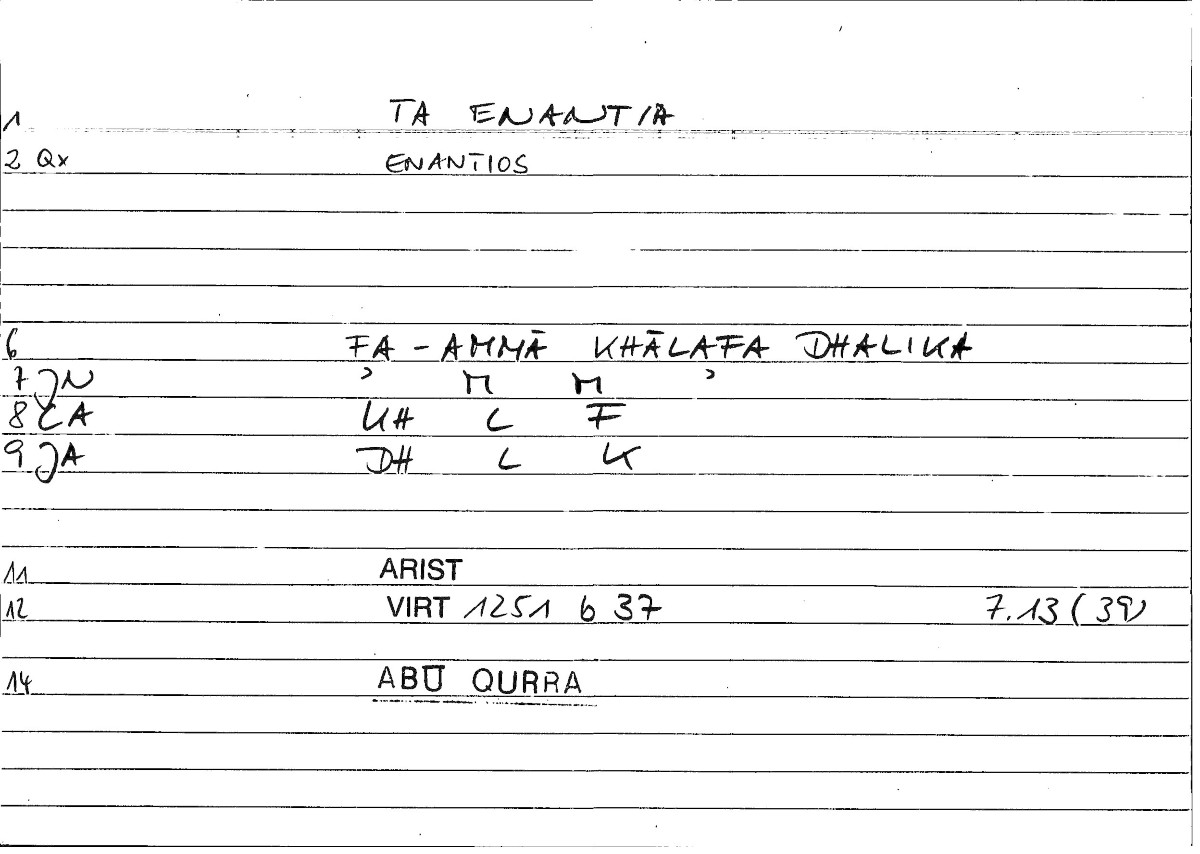 1 TA ENANTIA
2 Qx ENANTIOS
6 FA - AMMĀ KHĀLAFA DHALIKA
7 JN ʾ M M ʾ
8 CA KH L F
9 JA DH L K
11 ARIST
12 VIRT 1251 b 37 7.13 (39)
14 ABŪ QURRA